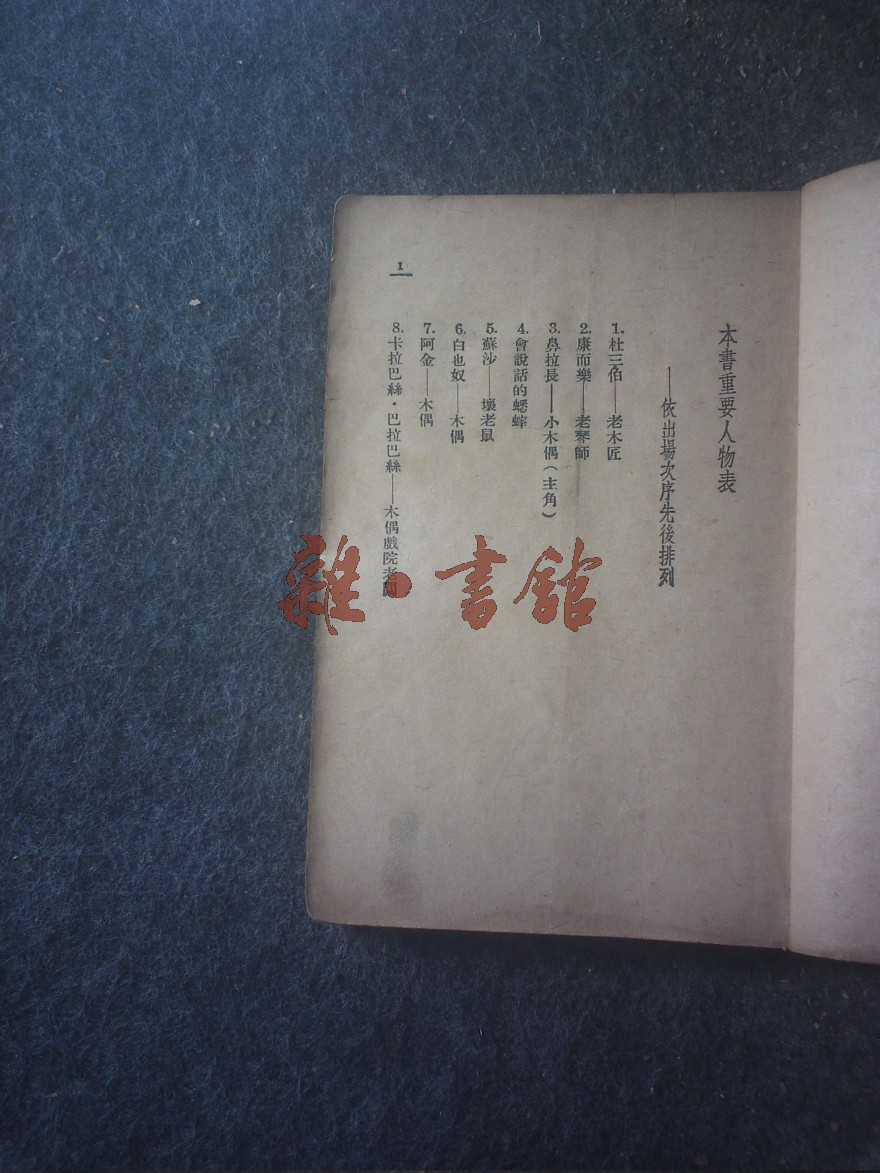 本書重要人物表
——依出場次序先後排列
1. 杜三伯——老木匠
2. 康而樂——老琴師
3. 鼻拉長——小木偶(主角)
4. 會說話的蟋蟀
5. 蘇沙——壞老鼠
6. 白也奴——木偶
7. 阿金——木偶
8. 卡拉巴絲·巴拉巴絲——木偶戲院老闆
1
雜·書館